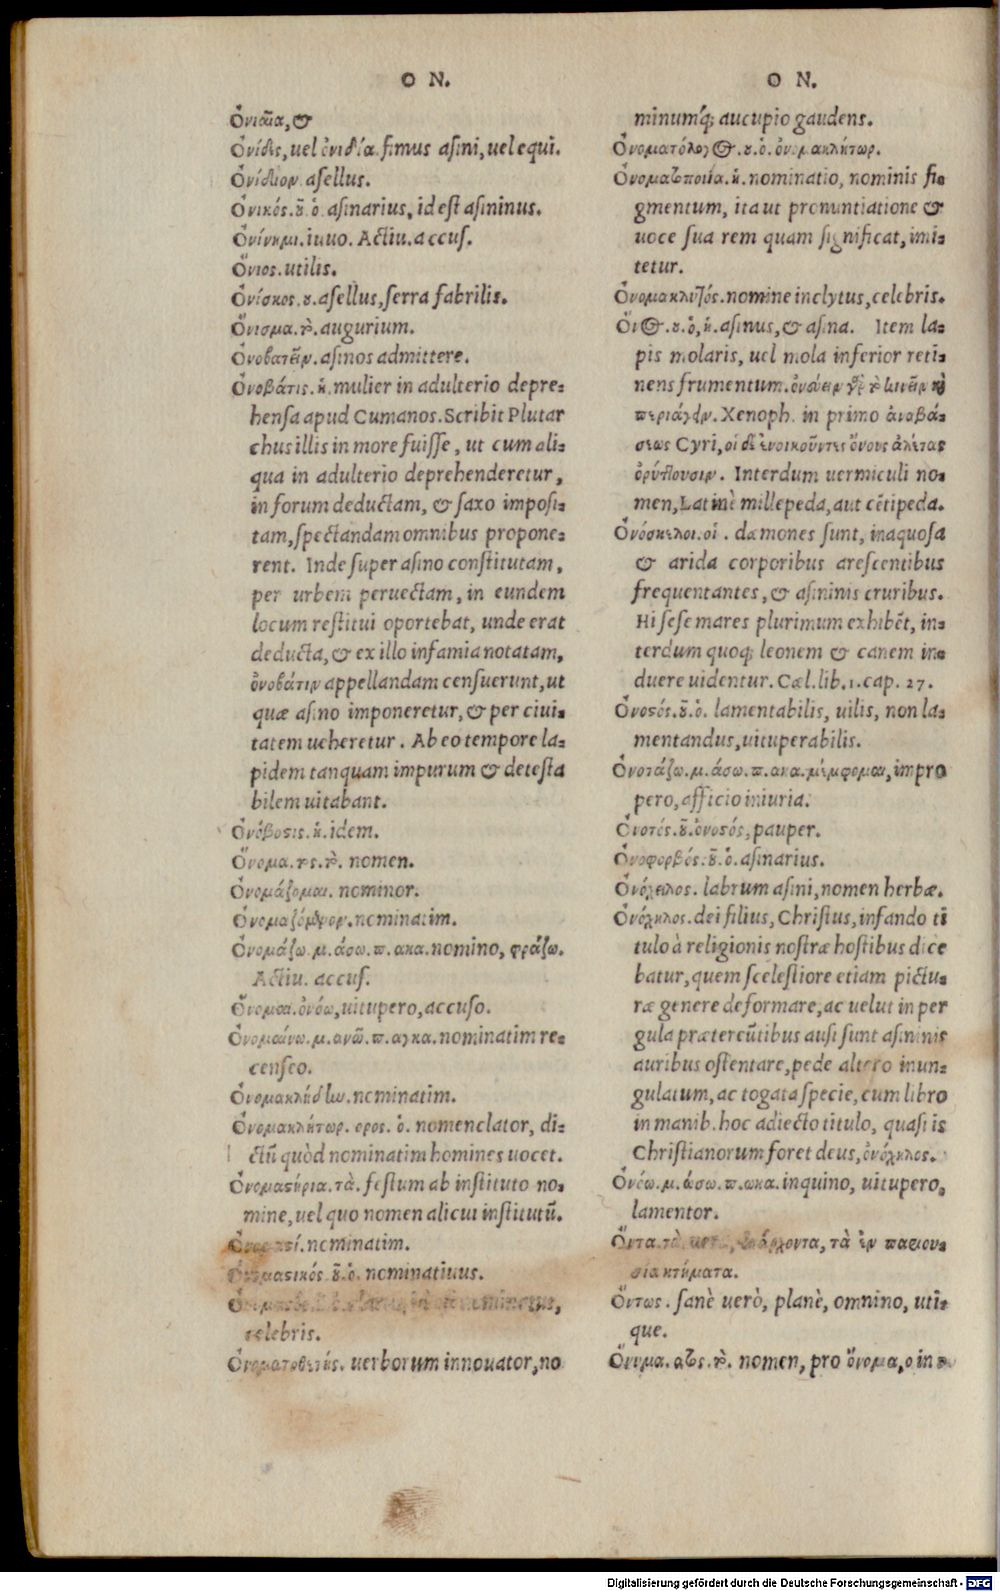 O N.
Ὀνιαῖα, &
Ὀνίδις, uel ὀνιδία. fimus asini, uel equi.
Ὀνίδιον asellus.
Ὀνικός. οῦ. ὁ. asinarius, id est asininus.
Ὀνίνημι. iuuo. Actiu. accus.
Ὄνιος. utilis.
Ὀνίσκος. ου. asellus, serra fabrilis.
Ὄνισμα. τὸ. augurium.
Ὀνοβατεῖν. asinos admittere.
Ὀνοβάτις. ἡ. mulier in adulterio depre=
hensa apud Cumanos. Scribit Plutar
chus illis in more fuisse, ut cum ali=
qua in adulterio deprehenderetur,
in forum deductam, & saxo imposi=
tam, spectandam omnibus propone=
rent. Inde super asino constitutam,
per urbem peruectam, in eundem
locum restitui oportebat, unde erat
deducta, & ex illo infamia notatam,
ὀνοβάτιν appellandam censuerunt, ut
quæ asino imponeretur, & per ciui=
tatem ueheretur. Ab eo tempore la=
pidem tanquam impurum & detesta
bilem uitabant.
Ὀνόβοσις. ἡ. idem.
Ὄνομα. τος. τὸ. nomen.
Ὀνομάζομαι. nominor.
Ὀνομαζόμενον. nominatim.
Ὀνομάζω. μ. άσω. π. ακα. nomino, φράζω.
Actiu. accus.
Ὄνομαι. ὀνόω, uitupero, accuso.
Ὀνομαίνω. μ. ανῶ. π. αγκα. nominatim re=
censeo.
Ὀνομακλήδην. nominatim.
Ὀνομακλήτωρ. ορος. ὁ. nomenclator, di=
ctũ quòd nominatim homines uocet.
Ὀνομαστήρια. τὰ. festum ab instituto no=
mine, uel quo nomen alicui institutũ.
Ὀνομαστί. nominatim.
Ὀνομαστικός. οῦ. ὁ. nominatiuus.
celebris.
Ὀνοματοθετής. uerborum innouator, no
O N.
minumq́; aucupio gaudens.
Ὀνοματόλογος. ου. ὁ. ὀνομακλήτωρ.
Ὀνοματοποιία. ἡ. nominatio, nominis fi=
gmentum, ita ut pronuntiatione &
uoce sua rem quam significat, imi=
tetur.
Ὀνομακλυτός. nomine inclytus, celebris.
Ὄνος. ου. ὁ, ἡ. asinus, & asina. Item la=
pis molaris, uel mola inferior reti=
nens frumentum. ὀνεύειν γὰρ τὸ κινεῖν καὶ
περιάγειν. Xenoph. in primo ἀναβά=
σεως Cyri, οἱ δὲ ἐνοικοῦντες ὄνους ἀλέτας
ὀρύττουσιν. Interdum uermiculi no=
men, Latinè millepeda, aut cẽtipeda.
Ὀνόσκελοι. οἱ. dæmones sunt, inaquosa
& arida corporibus arescentibus
frequentantes, & asininis cruribus.
Hi sese mares plurimum exhibẽt, in=
terdum quoq; leonem & canem in=
duere uidentur. Cæl. lib. 1. cap. 27.
Ὀνοστός. οῦ. ὁ. lamentabilis, uilis, non la=
mentandus, uituperabilis.
Ὀνοτάζω. μ. άσω. π. ακα. μέμφομαι, impro
pero, afficio iniuria.
Ὀνοτός. οῦ. ὀνοστός, pauper.
Ὀνοφορβός. οῦ. ὁ. asinarius.
Ὀνόχειλος. labrum asini, nomen herbæ.
Ὀνόχηλος. dei filius, Christus, infando ti
tulo à religionis nostræ hostibus dice
batur, quem scelestiore etiam pictu=
ræ genere deformare, ac uelut in per
gula prætereũtibus ausi sunt asininis
auribus ostentare, pede altero inun=
gulatum, ac togata specie, cum libro
in manib. hoc adiecto titulo, quasi is
Christianorum foret deus, ὀνόχηλος.
Ὀνόω. μ. άσω. π. ωκα. inquino, uitupero,
lamentor.
Ὄντα. τὰ ὑπάρχοντα, τὰ ἐν παρου=
σία κτήματα.
Ὄντως. sanè uerò, planè, omnino, uti=
que.
Ὄνυμα. ατος. τὸ. nomen, pro ὄνομα, ο in
Digitalisierung gefördert durch die Deutsche Forschungsgemeinschaft - DFG